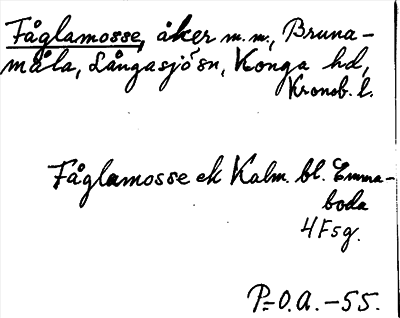 Fåglamosse, åker m.m., Bruna-
måla, Långasjö sn, Konga hd,
Kronob. l.
Fåglamosse ek Kalm. bl. Emma-
boda
4F5g.
P=O.A. -55.